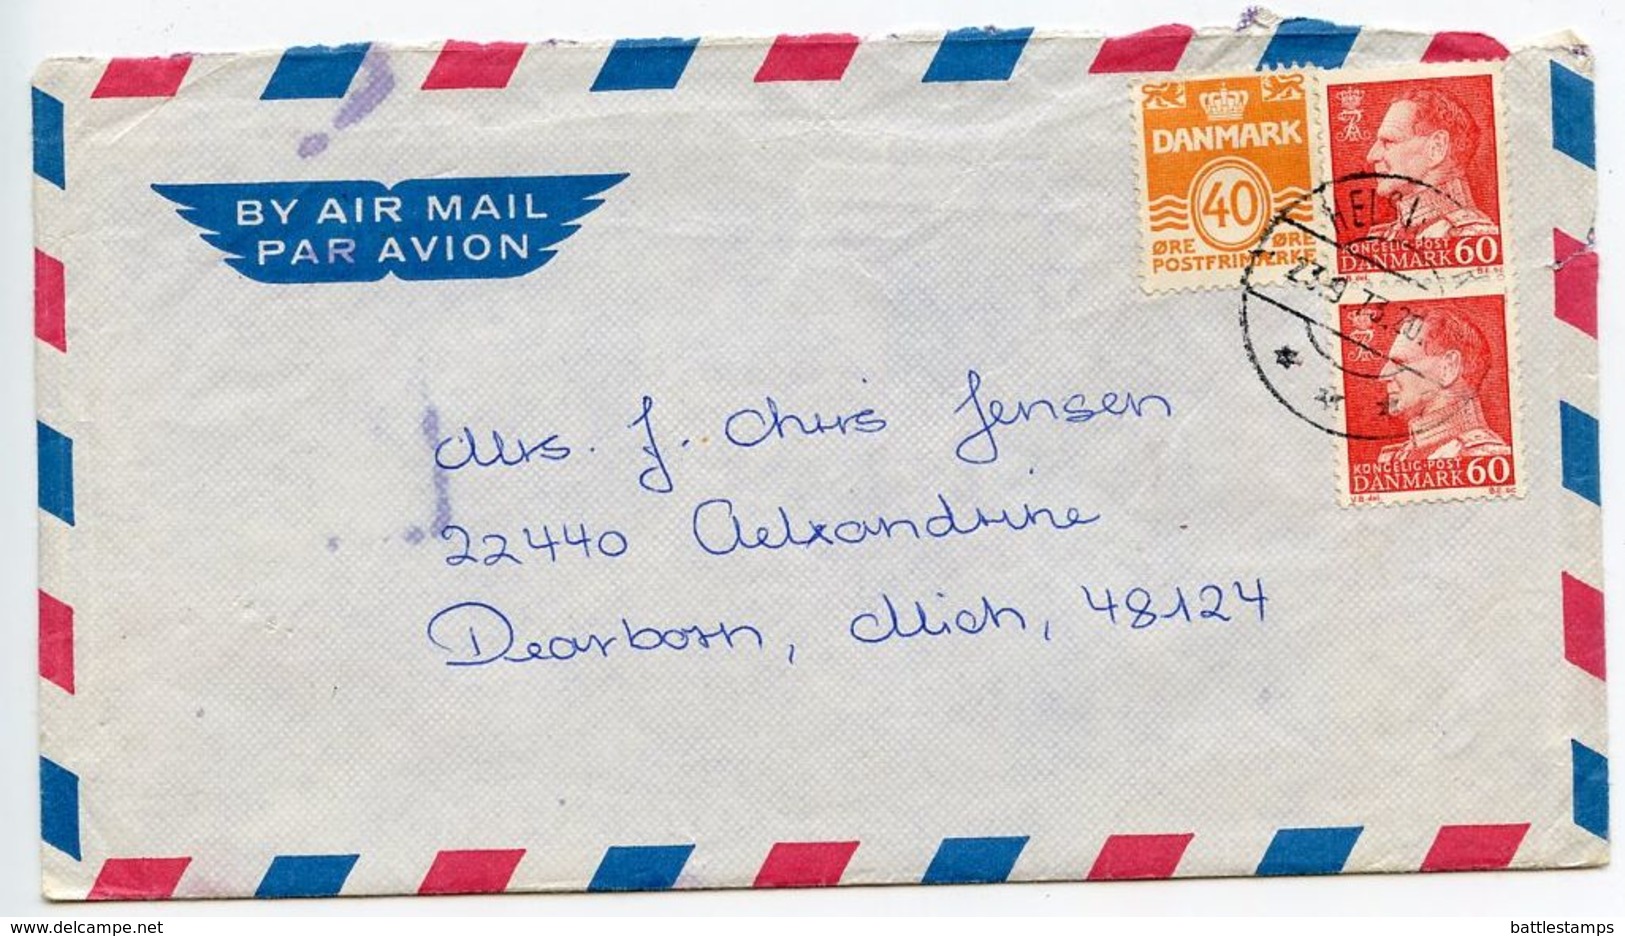 BY AIR MAIL
PAR AVION
DANMARK
40
ØRE ØRE
POSTFRIMÆRKE
KONGELIG·POST
DANMARK 60
V.B. del. B.E. sc.
23.9.73.20.
KONGELIG·POST
DANMARK 60
V.B. del. B.E. sc.
Mrs. J. Chris Jensen
22440 Aelxandrine
Dearborn, Mich, 48124
www.delcampe.net
battlestamps